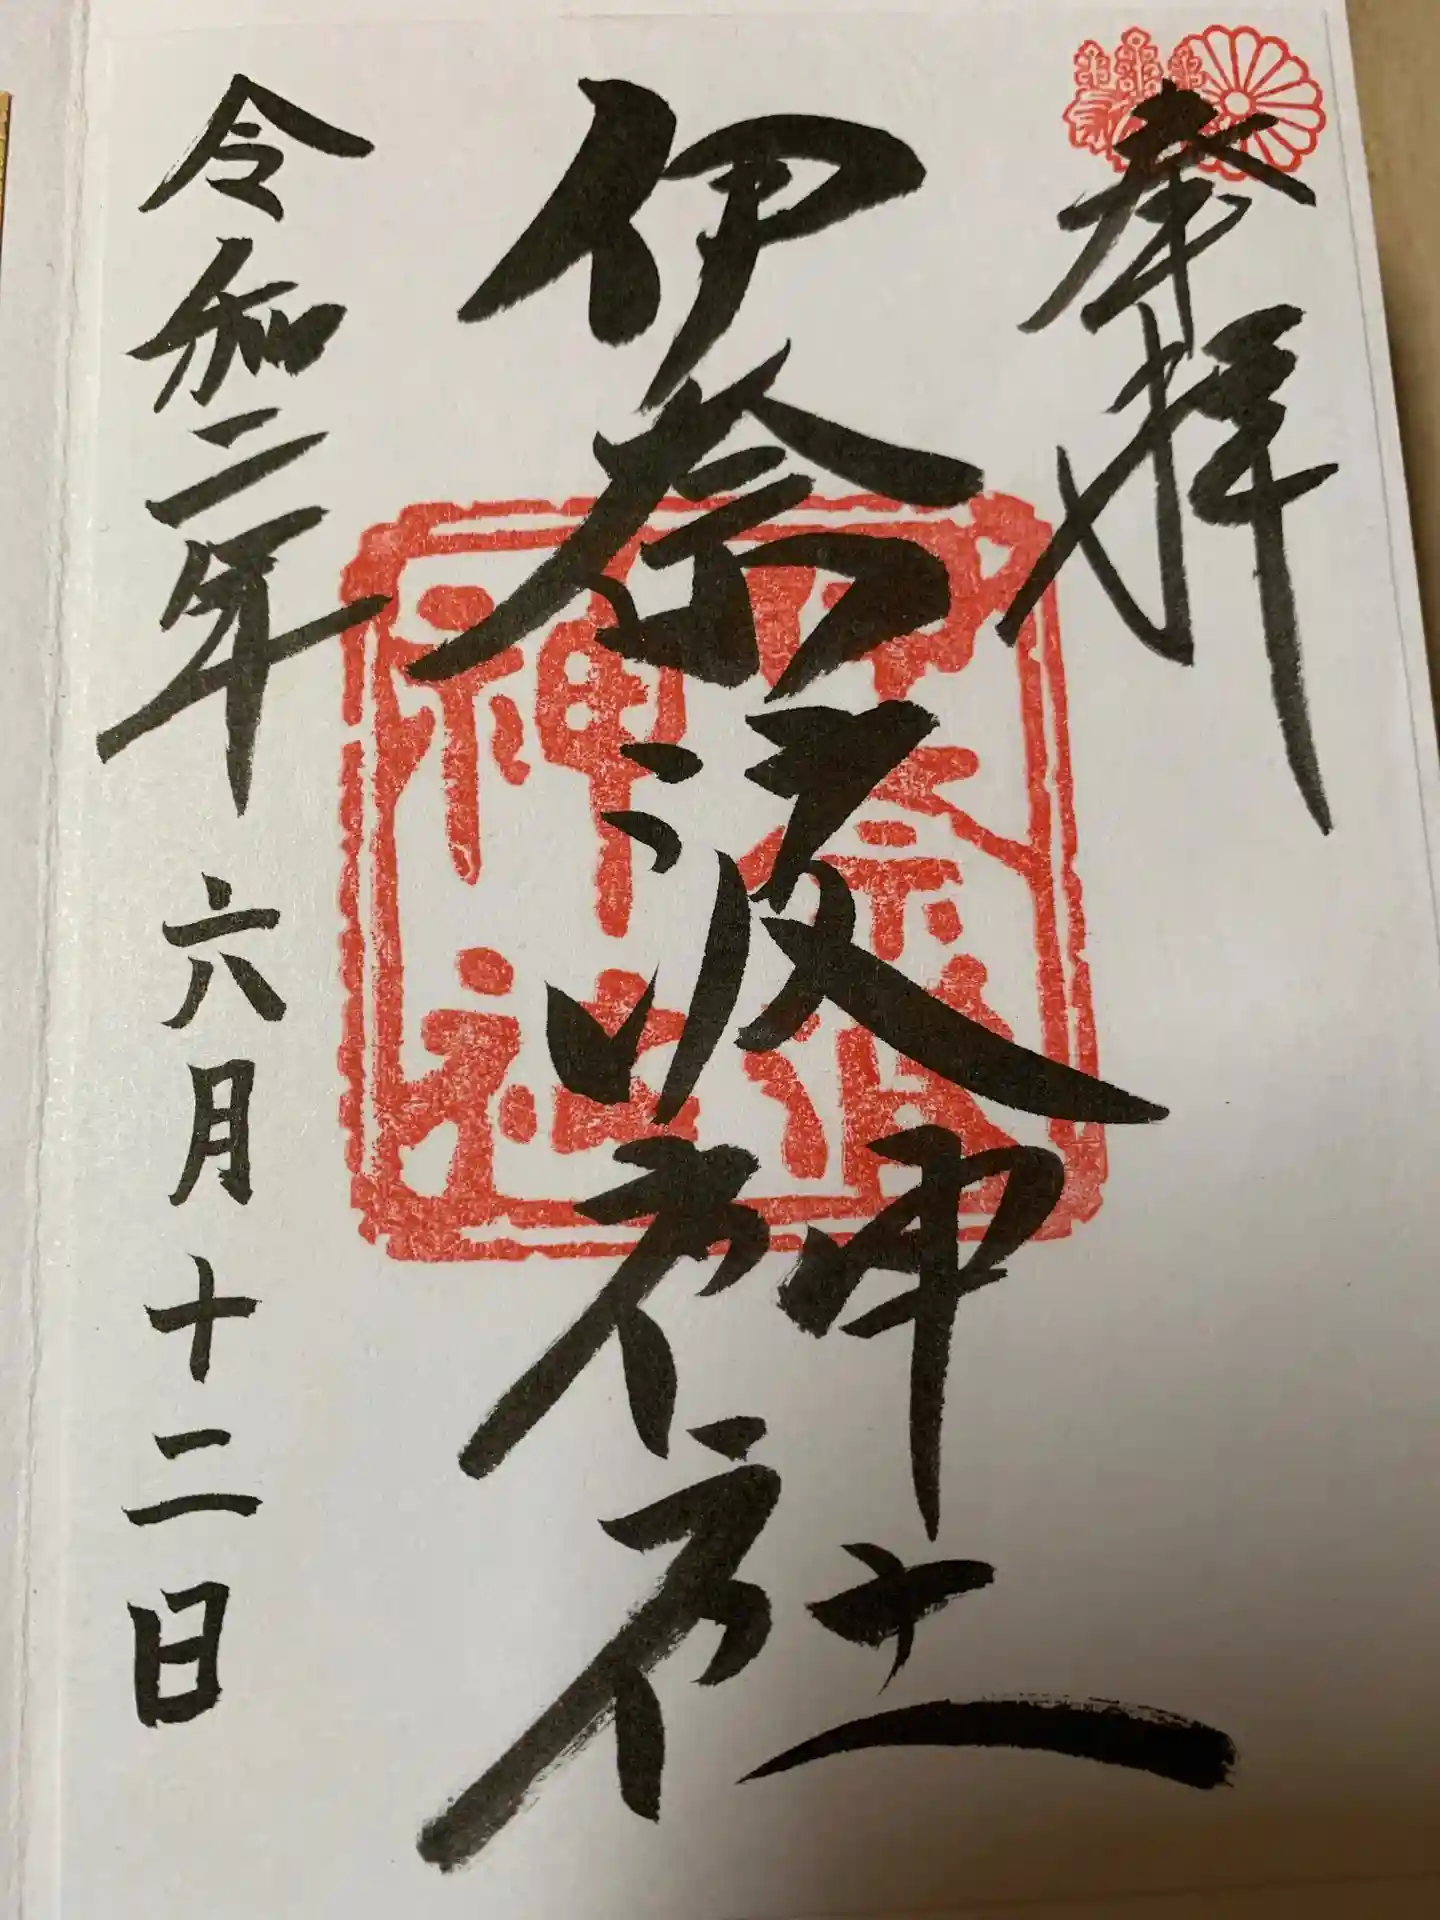 奉拝
伊奈波神社
伊奈波神社
令和二年六月十二日